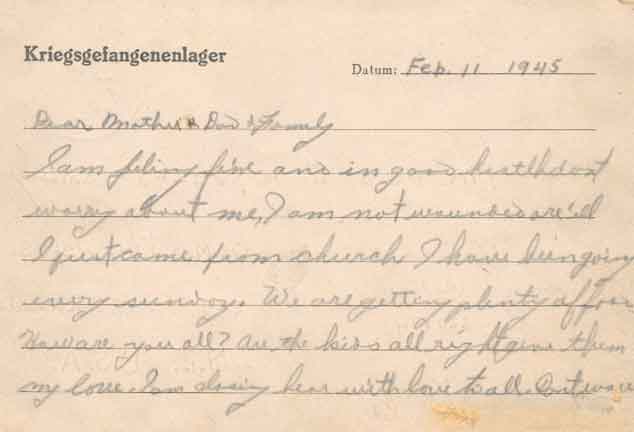 Kriegsgefangenenlager
Datum: Feb. 11 1945
Dear Mother & Dad & Family
I am filing fine and in good health dont
worry about me, I am not wounded are ill
I just came from church I have been going
every sunday. We are getting plenty of food
How are you all? Are the kids all right give them
my love. I am closing hear with love to all. Cont